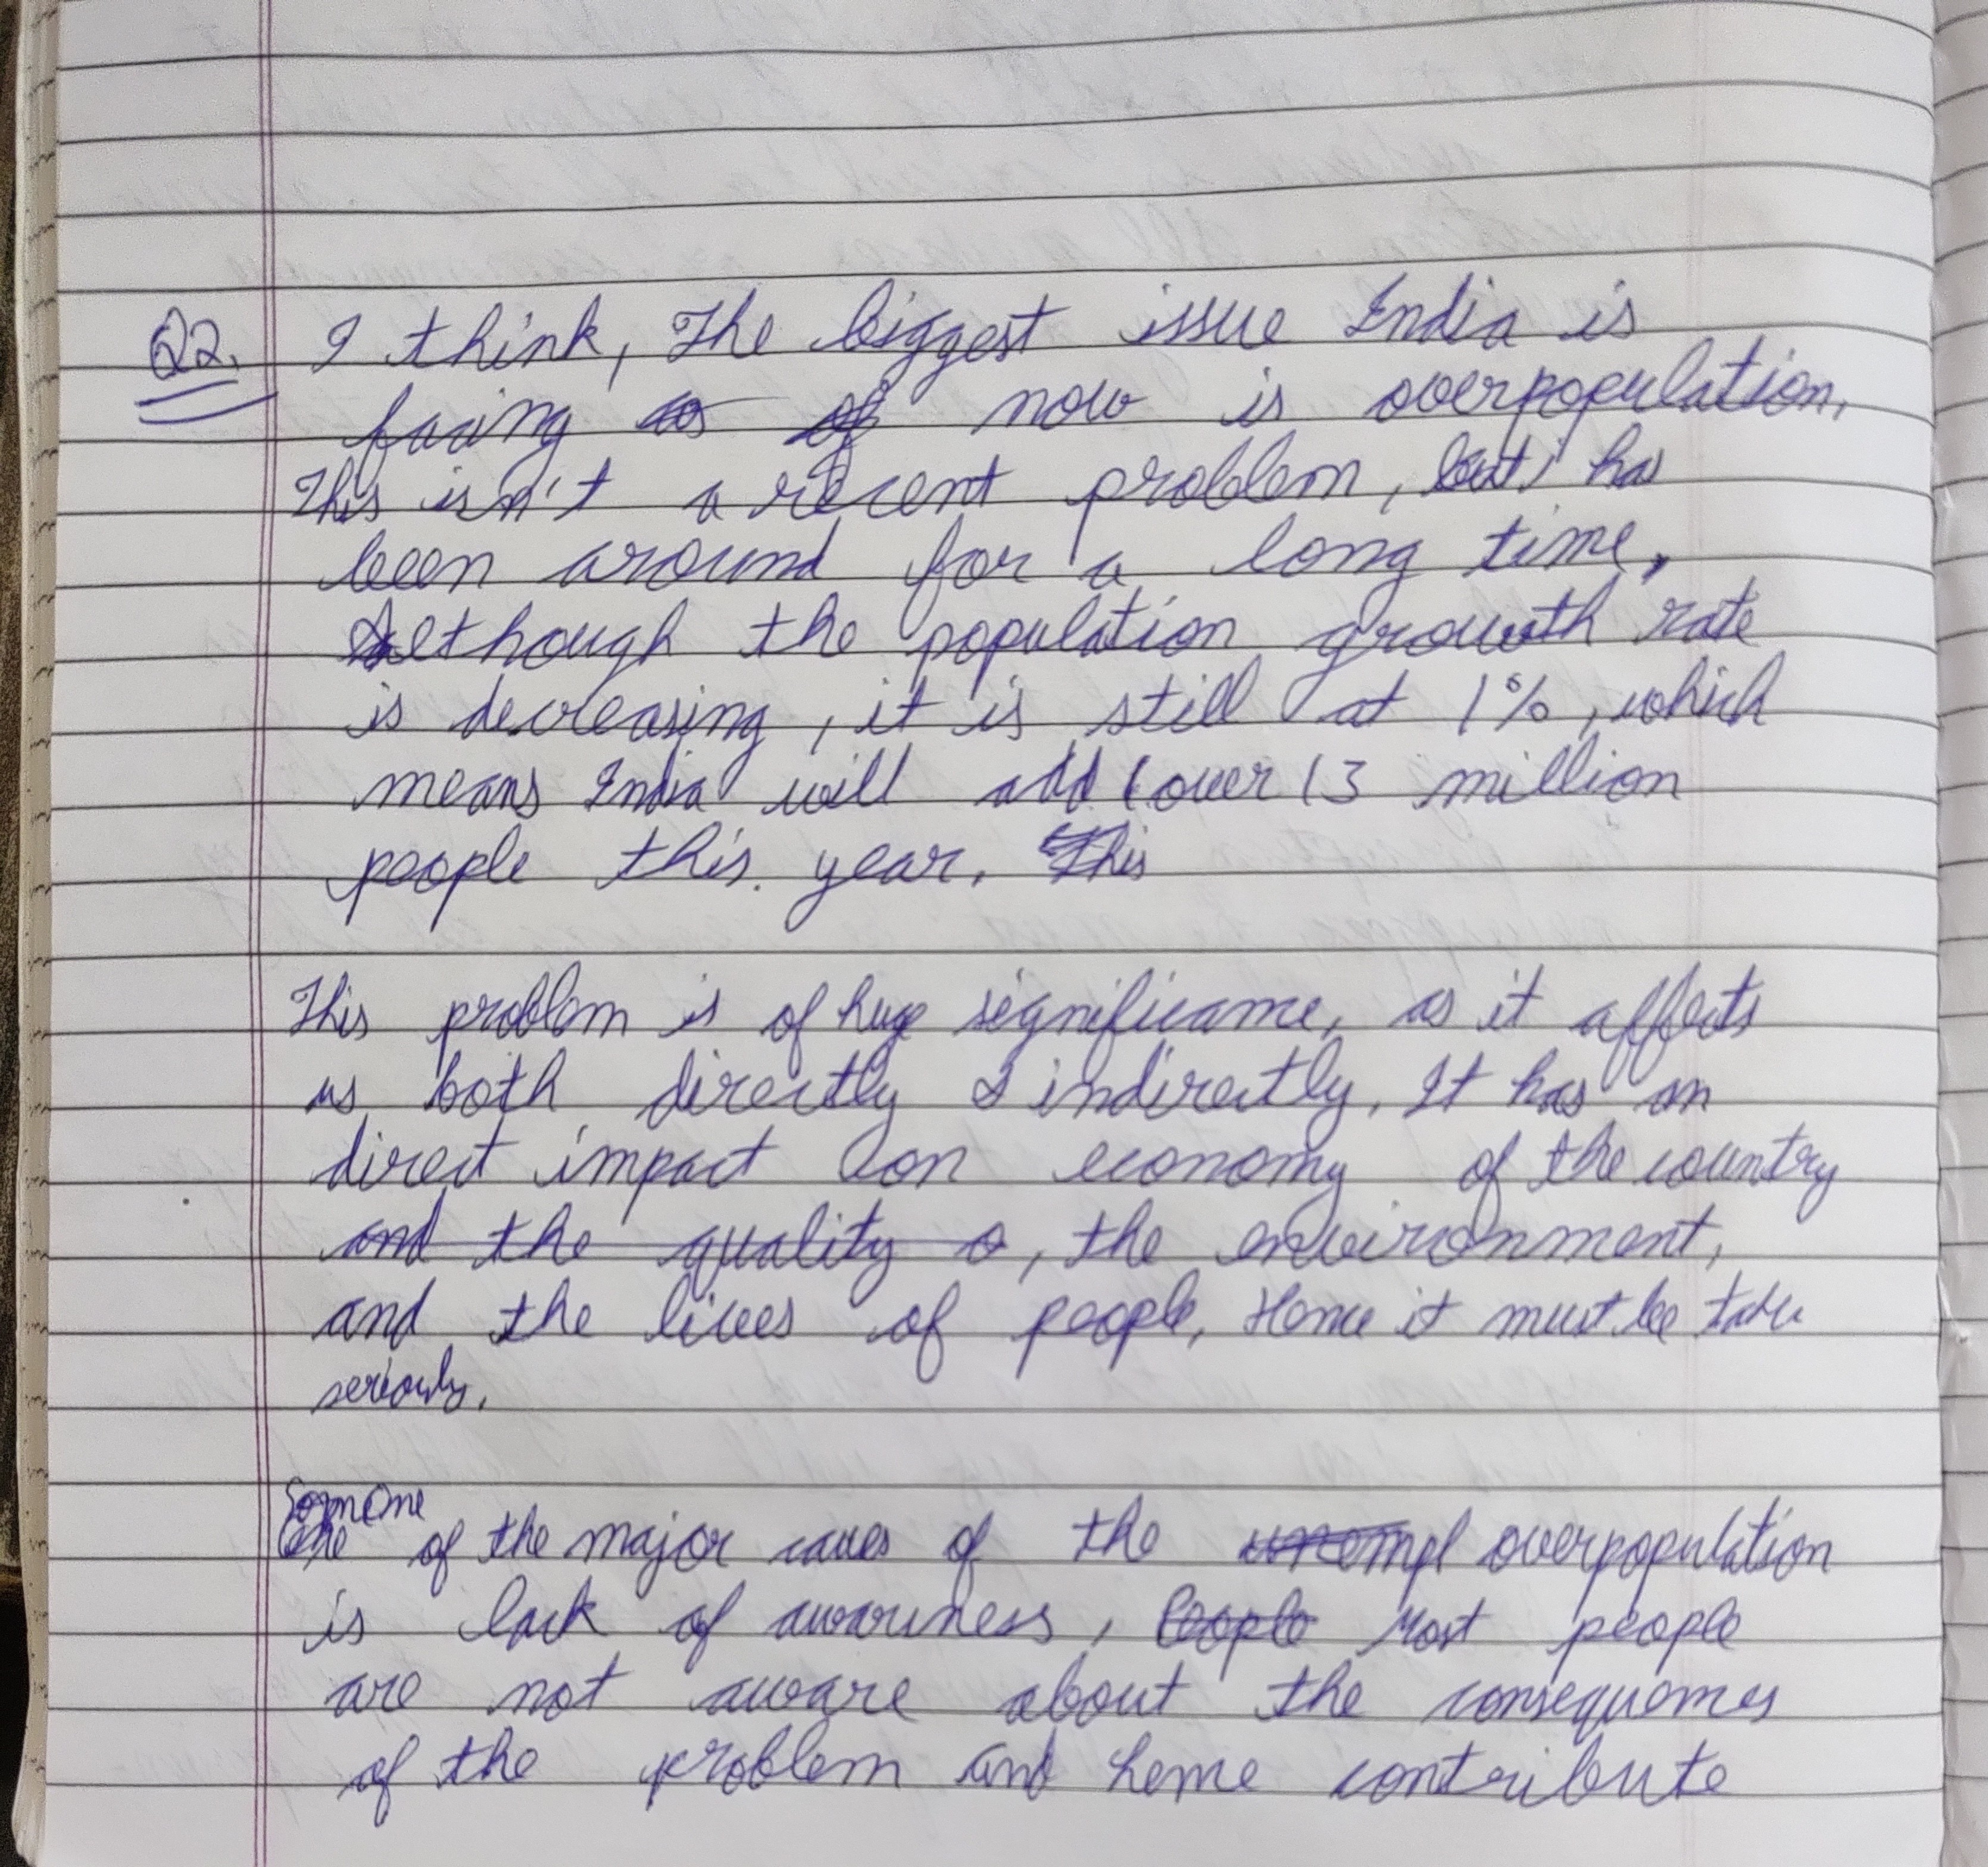 Q2. I think, The biggest issue India is
facing as of now is overpopulation.
This isn't a recent problem, but has
been around for a long time.
Although the population growth rate
is decreasing, it is still at 1%, which
means India will add over 13 million
people this year. This
This problem is of huge significance, as it affects
us both directly & indirectly. It has an
direct impact on economy of the country
and the quality o, the environment,
and the lives of people. Hence it must be taken
seriously.
One
of the major causes of the overpopulation
is lack of awareness, People Most people
are not aware about the consequences
of the problem and hence contribute